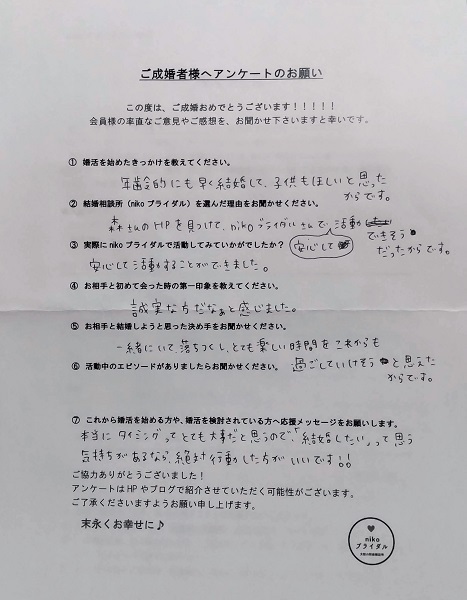 ご成婚者様へアンケートのお願い
この度は、ご成婚おめでとうございます!!!!!
会員様の率直なご意見やご感想を、お聞かせ下さいますと幸いです。
① 婚活を始めたきっかけを教えてください。
年齢的にも早く結婚して、子供もほしいと思った
からです。
② 結婚相談所(niko ブライダル)を選んだ理由をお聞かせください。
森さんのHPを見つけて、nikoブライダルさんで活動
できそう
③ 実際に niko ブライダルで活動してみていかがでしたか?
安心して
だったからです。
安心して活動することができました。
④ お相手と初めて会った時の第一印象を教えてください。
誠実な方だなぁと感じました。
⑤ お相手と結婚しようと思った決め手をお聞かせください。
一緒にいて、落ちつくし、とても楽しい時間をこれからも
⑥ 活動中のエピソードがありましたらお聞かせください。
過ごしていけそうと思えた
からです。
⑦ これから婚活を始める方や、婚活を検討されている方へ応援メッセージをお願いします。
本当にタイミングってとても大事だと思うので、「結婚したい」って思う
気持ちがあるなら、絶対行動した方がいいです!!
ご協力ありがとうございました!
アンケートはHPやブログで紹介させていただく可能性がございます。
ご了承くださいますようお願い申し上げます。
末永くお幸せに♪
niko
ブライダル